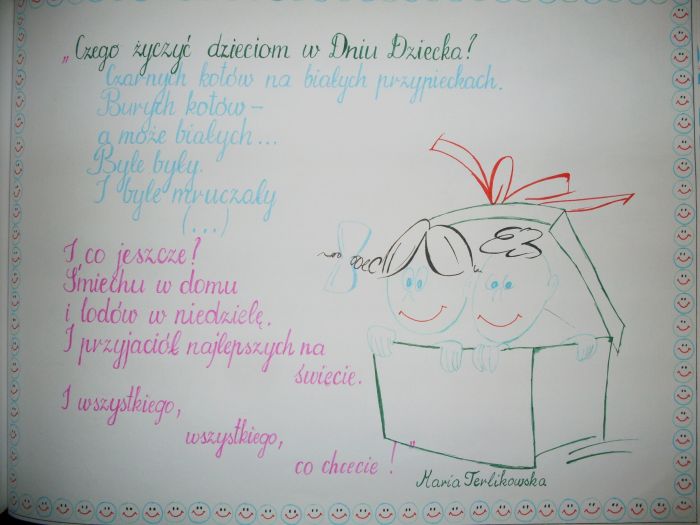 „Czego życzyć dzieciom w Dniu Dziecka?
Czarnych kotów na białych przypieckach.
Burych kotów –
a może białych...
Byle były.
I byle mruczały
(...)
I co jeszcze?
Śmiechu w domu
i lodów w niedzielę.
I przyjaciół najlepszych na
świecie.
I wszystkiego,
wszystkiego,
co chcecie!"
Maria Terlikowska